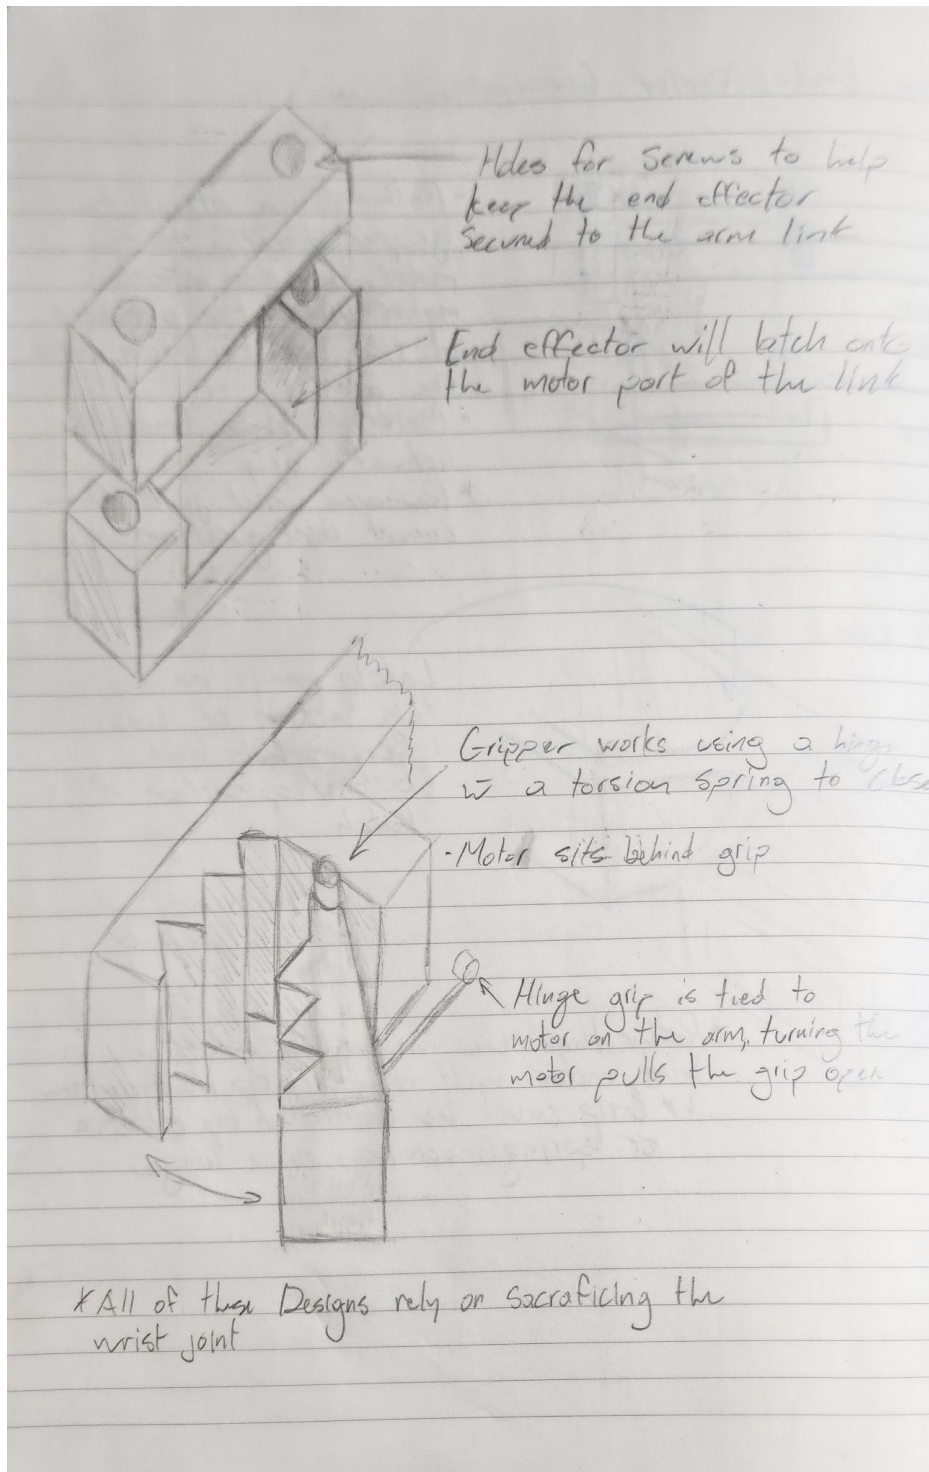 Holes for Screws to help
keep the end effector
secured to the arm link
End effector will latch onto
the motor part of the link
Gripper works using a hinge
w a torsion spring to close
-Motor sits behind grip
Hinge grip is tied to
motor on the arm, turning the
motor pulls the grip open
*All of these Designs rely on sacraficing the
wrist joint